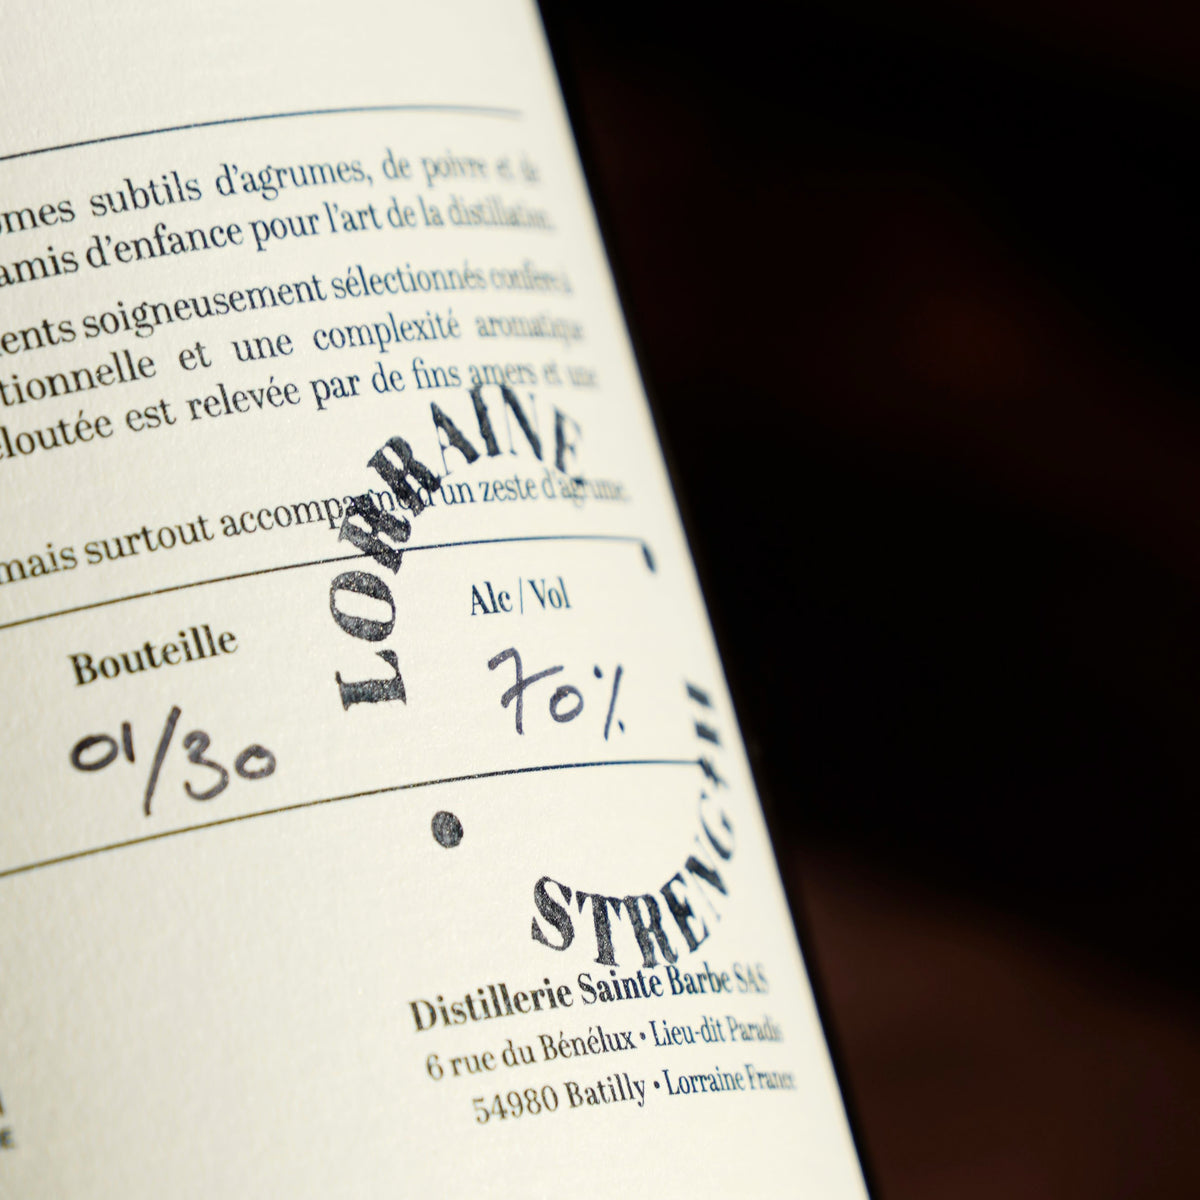 subtils d'agrumes, de poivre et de
amis d'enfance pour l'art de la distillation.
soigneusement sélectionnés confère à
et une complexité aromatique
est relevée par de fins amers et une
mais surtout accompagné d'un zeste d'agrume.
LORRAINE
Bouteille
Alc / Vol
01/30
70%
STRENGTH
Distillerie Sainte Barbe SAS
6 rue du Bénélux • Lieu-dit Paradis
54980 Batilly • Lorraine France